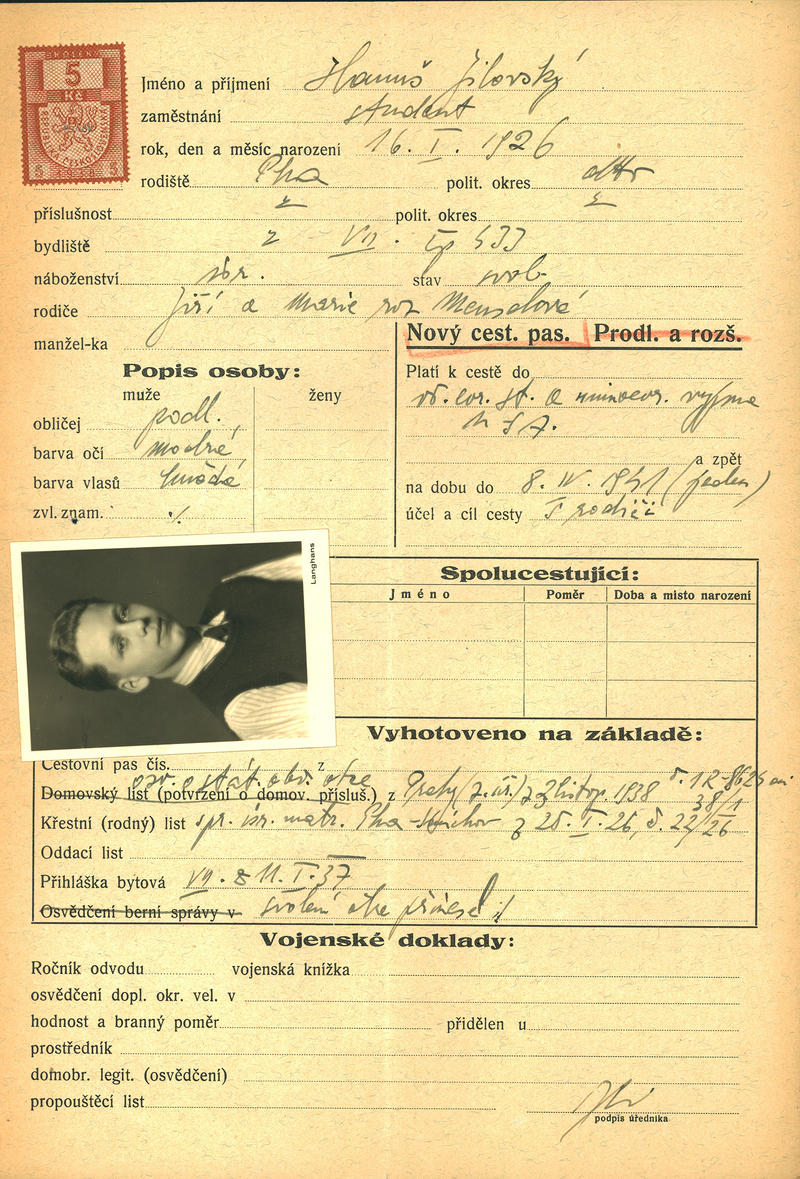 KOLEK
5
Kč
REPUBLIKA ČESKOSLOVENSKÁ
5 5
Jméno a příjmení Hanuš Jilovský
zaměstnání student
rok, den a měsíc narození 16. I. 1926
rodiště Pha polit. okres dtto
příslušnost z polit. okres z
bydliště z VII. čp 533
náboženství isr. stav svob
rodiče Jiří a Marie roz Menzelová
manžel-ka
Nový cest. pas. Prodl. a rozš.
Popis osoby:
muže ženy
obličej podl.
barva očí modré
barva vlasů hnědá
zvl. znam. ·/.
Platí k cestě do
vš. evr. st. a mimoevr. vyjma
a zpět
na dobu do 8. IV. 1941 (jeden)
účel a cíl cesty s rodiči
Langhans
Spolucestující:
Jméno Poměr Doba a místo narození
Vyhotoveno na základě:
Cestovní pas čís. z
o stát. obč. otce
Domovský list (potvrzení o domov. přísluš.) z Prahy (z. úř.) z listop. 1938
38/1
Křestní (rodný) list spr. isr. matr. Pha-Smíchov z 28. I. 26, č. 22/26
Oddací list
Přihláška bytová VII. z 11. I. 37
Osvědčení berní správy v svolení otce přinesl
Vojenské doklady:
Ročník odvodu vojenská knížka
osvědčení dopl. okr. vel. v
hodnost a branný poměr přidělen u
prostředník
domobr. legit. (osvědčení)
propouštěcí list
podpis úředníka